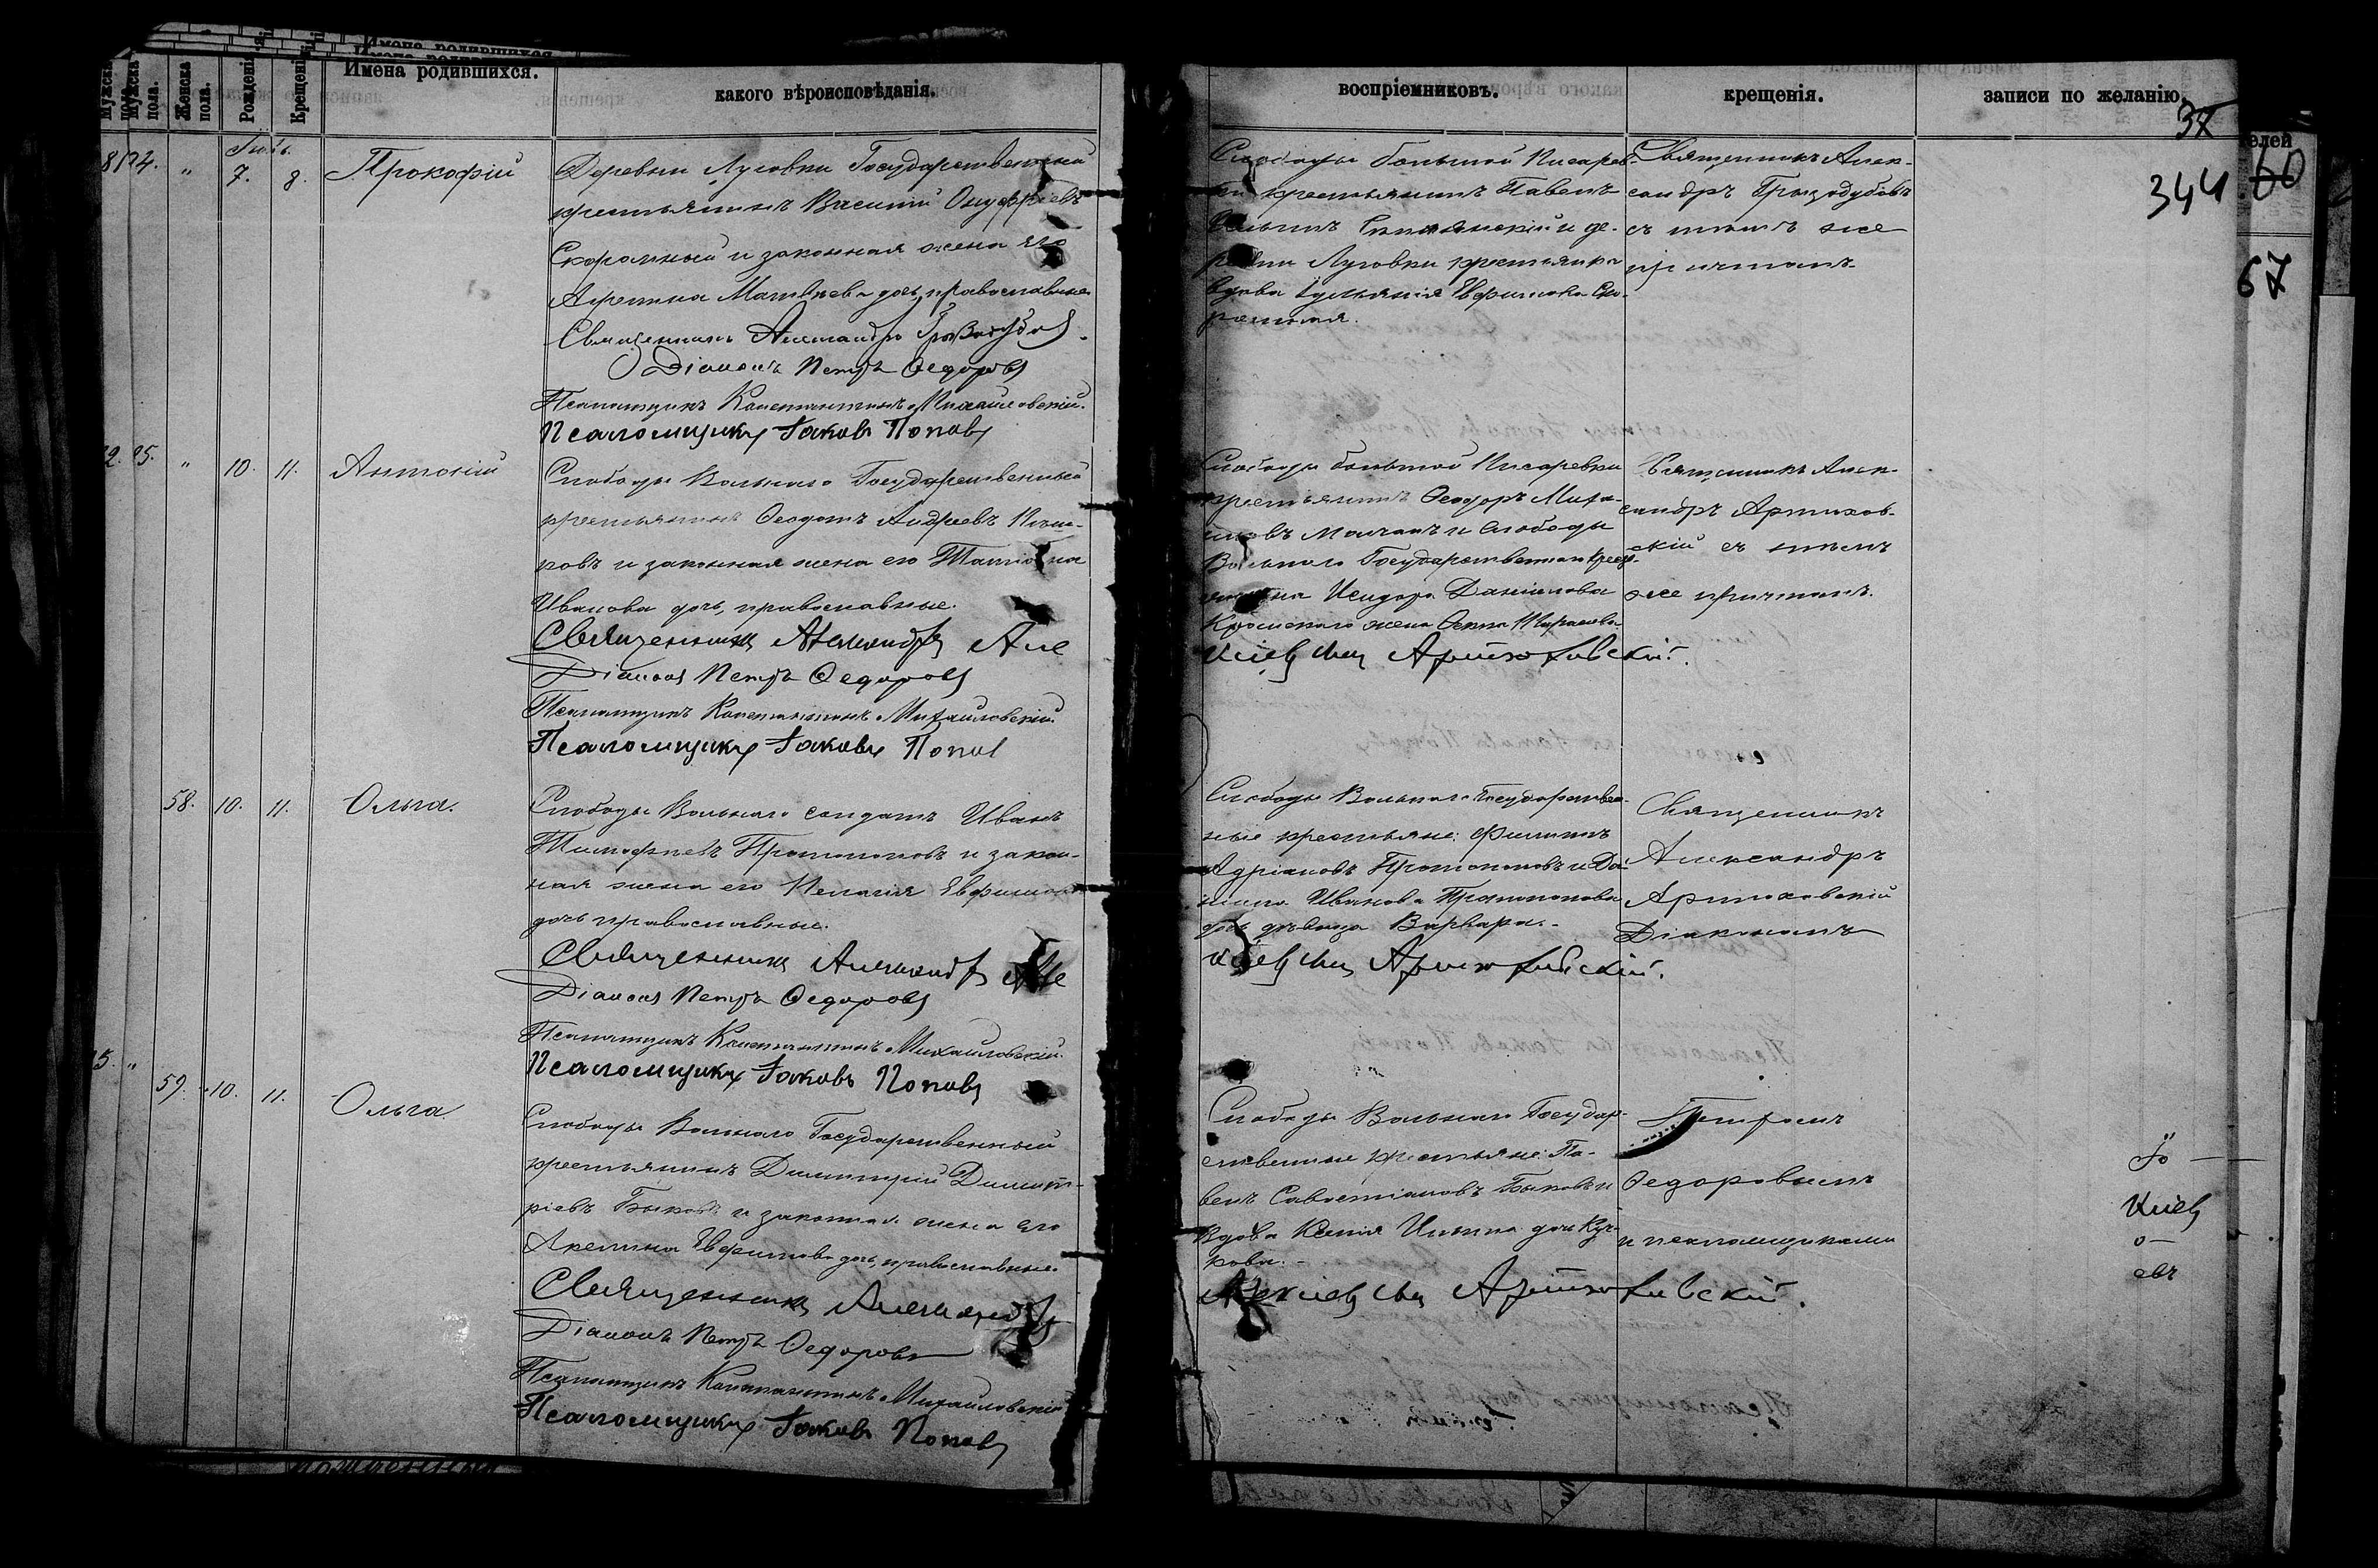 Имена родившихся.
Мужска пола.
Женска пола.
Рожденія
Крещенія
Имена родившихся.
какого вѣроисповѣданія.
Іюль.
94. " 7. 8. Прокофій
Деревни Луговки Государственный
крестьянинъ Василій Онуфріевъ
Скоромный и законная жена его
Матвѣева дочь, православные
Священникъ Александръ Грызодубовъ
Діаконъ Петръ Ѳедоровъ
Псаломщикъ Константинъ Михайловскій.
Псаломщикъ Іаковъ Поповъ
95. " 10. 11. Антоній
Слободы Вольнаго Государственный
крестьянинъ Ѳеодотъ Андреевъ
и законная жена его Татіана
Иванова дочь, православные.
Священникъ Александръ Але
Діаконъ Петръ Ѳедоровъ
Псаломщикъ Константинъ Михайловскій
Псаломщикъ Іаковъ Поповъ
58. 10. 11. Ольга.
Слободы Вольнаго солдатъ Иванъ
Тимофеевъ Протопоповъ и закон-
ная жена его Пелагія Евфимова
дочь православные.
Священникъ Александръ Але
Діаконъ Петръ Ѳедоровъ
Псаломщикъ Константинъ Михайловскій.
Псаломщикъ Іаковъ Поповъ
59. 10. 11. Ольга
Слободы Вольнаго Государственный
крестьянинъ Димитрій Димит-
ріевъ Быковъ и законная жена его
Акелина Евфимова дочь, православные.
Священникъ Александръ
Діаконъ Петръ Ѳедоровъ
Псаломщикъ Константинъ Михайловскій
Псаломщикъ Іаковъ Поповъ
воспріемниковъ.
крещенія.
записи по желанію.
37
344
60
67
Слободы большой Писарев-
ки крестьянинъ Павелъ
и де-
ревни Луговки крестьянка
вдова Іульянія Евфимова Ско-
ромная.
Священникъ Алек-
сандръ Грызодубовъ
съ тѣмъ же
причтомъ
Слободы большой Писаревки
крестьянинъ Ѳеодоръ Миха-
иловъ и слободы
Вольнаго Государственнаго крест-
янина Исидора Даніилова
жена
кіевъ сынъ Артюховскій.
Священникъ Алек-
сандръ Артюхов-
скій съ тѣмъ
же причтомъ.
Слободы Вольнаго Государствен-
ные крестьяне: Филиппъ
Адріановъ Протопоповъ и Да-
ніила Иванова Протопопова
дочь дѣвица Варвара.
кіевъ сынъ Артюховскій.
Священникъ
Александръ
Артюховскій
Діаконъ
Слободы Вольнаго Государ-
ственные крестьяне: Па-
велъ Савостіановъ Быковъ и
вдова Ксенія Ильина дочь
кова.
Артюховскій.
Петромъ
Ѳедоровымъ
и псаломщиками
кіевъ
евъ